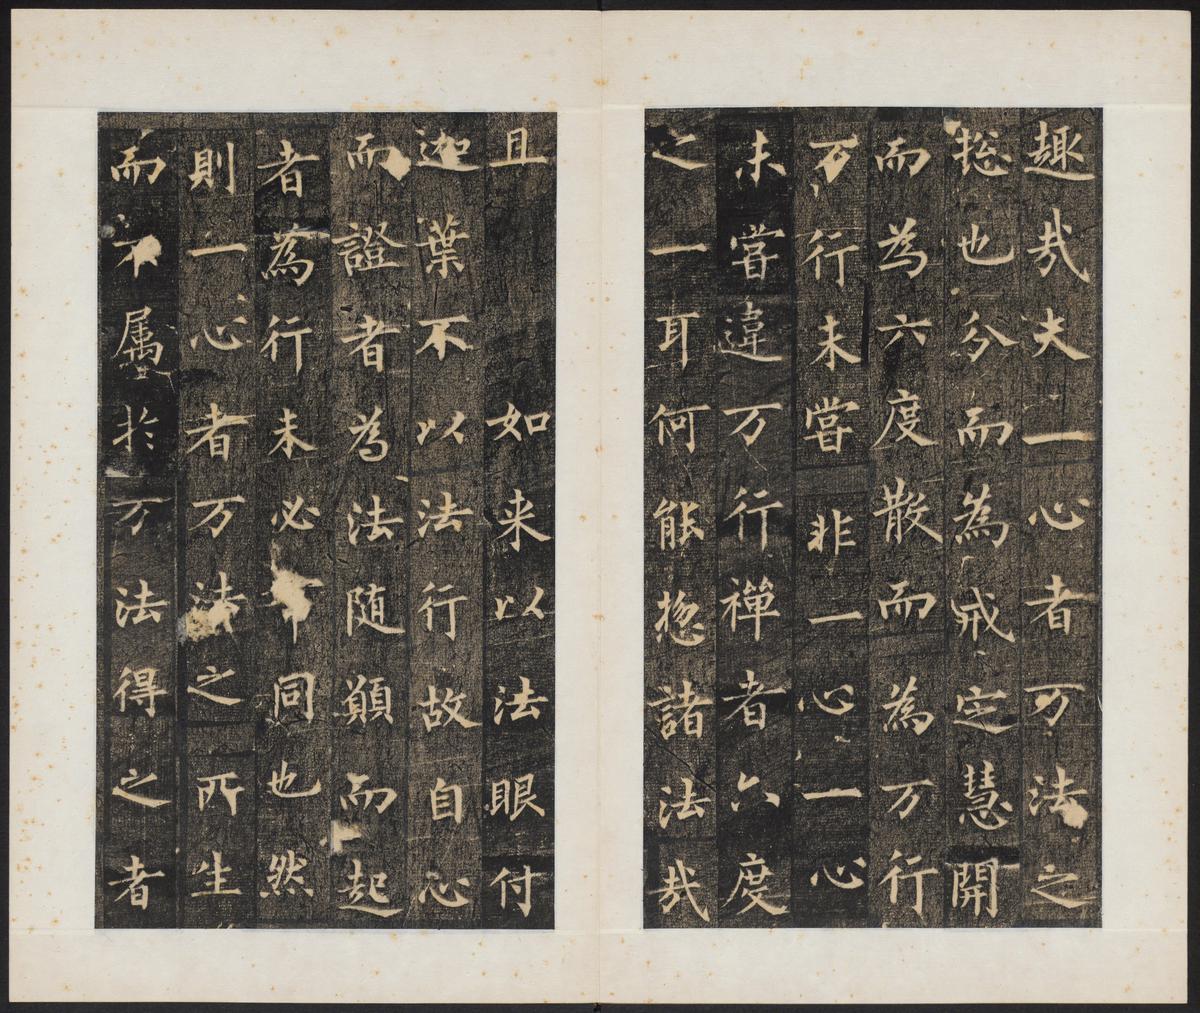 趣哉夫一心者万法之
揔也分而為戒定慧開
而為六度散而為万行
万行未嘗非一心一心
未嘗違万行禪者六度
之一耳何能揔諸法哉
且如来以法眼付
迦葉不以法行故自心
而證者為法随願而起
者為行未必同也然
則一心者万法之所生
而不属於万法得之者